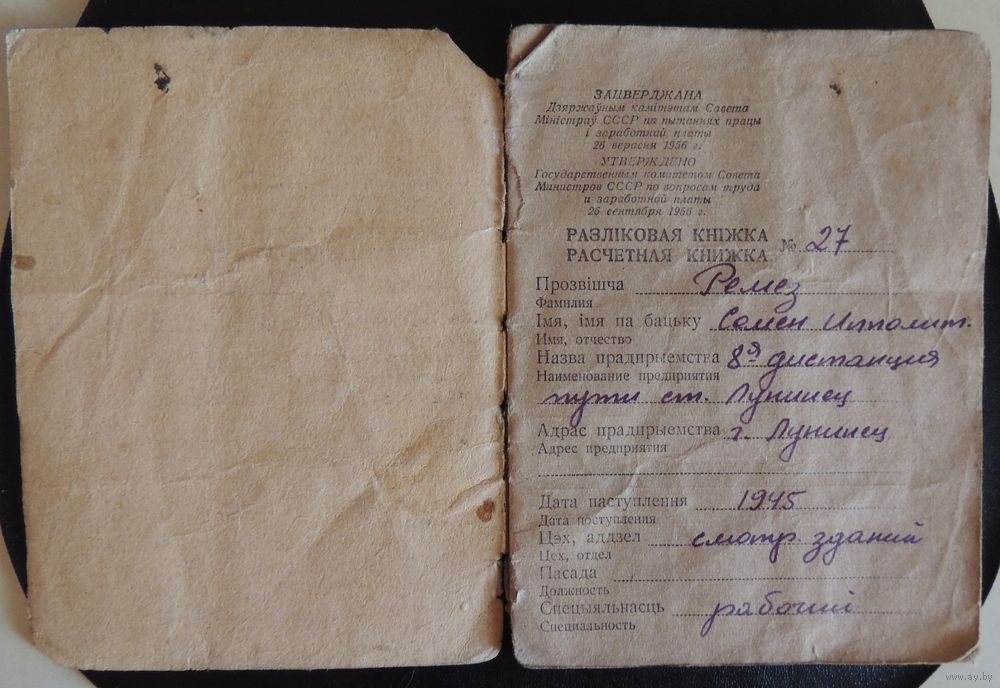 ЗАЦВЕРДЖАНА
Дзяржаўным камітэтам Савета
Міністраў СССР па пытаннях працы
і заработнай платы
26 верасня 1956 г.
УТВЕРЖДЕНО
Государственным комитетом Совета
Министров СССР по вопросам труда
и заработной платы
26 сентября 1956 г.
РАЗЛІКОВАЯ КНІЖКА
РАСЧЕТНАЯ КНИЖКА
№ 27
Прозвішча Ремез
Фамилия
Імя, імя па бацьку Семен Ипполит.
Имя, отчество
Назва прадпрыемства 8я дистанция
Наименование предприятия
пути ст. Лунинец
Адрас прадпрыемства г. Лунинец
Адрес предприятия
Дата паступлення 1945
Дата поступления
Цэх, аддзел смотр зданий
Цех, отдел
Пасада
Должность
Спецыяльнасць рабочий
Специальность
www.ay.by